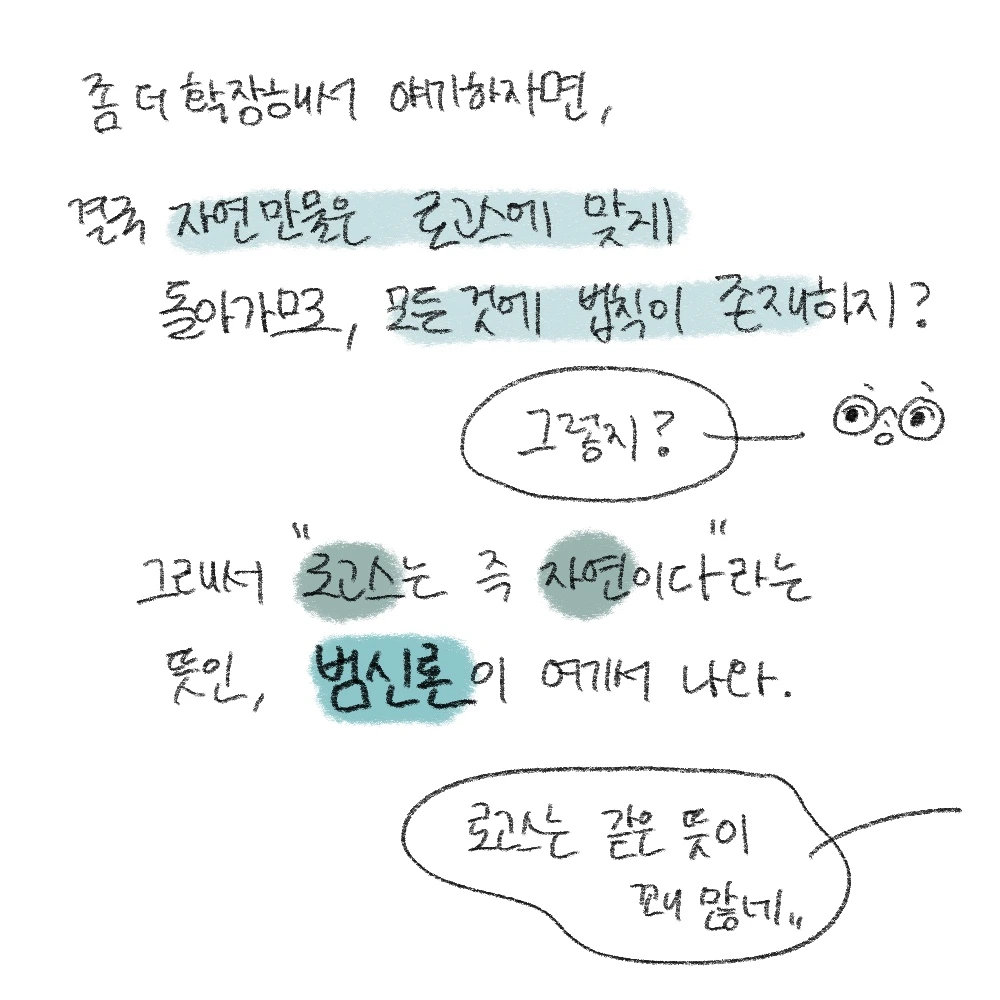 좀 더 확장해서 얘기하자면,
결국 자연만물은 로고스에 맞게
돌아가므로, 모든 것에 법칙이 존재하지?
그렇지?
그래서 "로고스는 즉 자연이다"라는
뜻인, 범신론이 여기서 나와.
로고스는 같은 뜻이
꽤 많네..